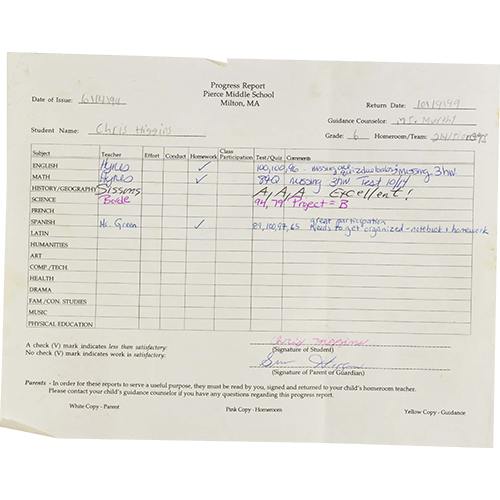 Progress Report
Pierce Middle School
Milton, MA
Date of Issue: Return Date: 10/9/99
Guidance Counselor: Ms. Murphy
Student Name: Chris Higgins Grade: 6 Homeroom/Team:
Subject Teacher Effort Conduct Homework Class Participation Test/Quiz Comments
ENGLISH Hynes ✓ 100,100,96 missing 3 hw
MATH Hynes ✓ 87Q missing 3 hw Test 10/7
HISTORY/GEOGRAPHY Sissons A, A, A Excellent!
SCIENCE Bode 94, 79 Project = B
FRENCH
SPANISH Ms. Green ✓ 89,100,97,65 great participation
Needs to get organized - notebook + homework
LATIN
HUMANITIES
ART
COMP./TECH.
HEALTH
DRAMA
FAM./CON. STUDIES
MUSIC
PHYSICAL EDUCATION
A check (✓) mark indicates less than satisfactory.
No check (✓) mark indicates work is satisfactory.
Chris Higgins
(Signature of Student)
(Signature of Parent of Guardian)
Parents - In order for these reports to serve a useful purpose, they must be read by you, signed and returned to your child's homeroom teacher.
Please contact your child's guidance counselor if you have any questions regarding this progress report.
White Copy - Parent Pink Copy - Homeroom Yellow Copy - Guidance